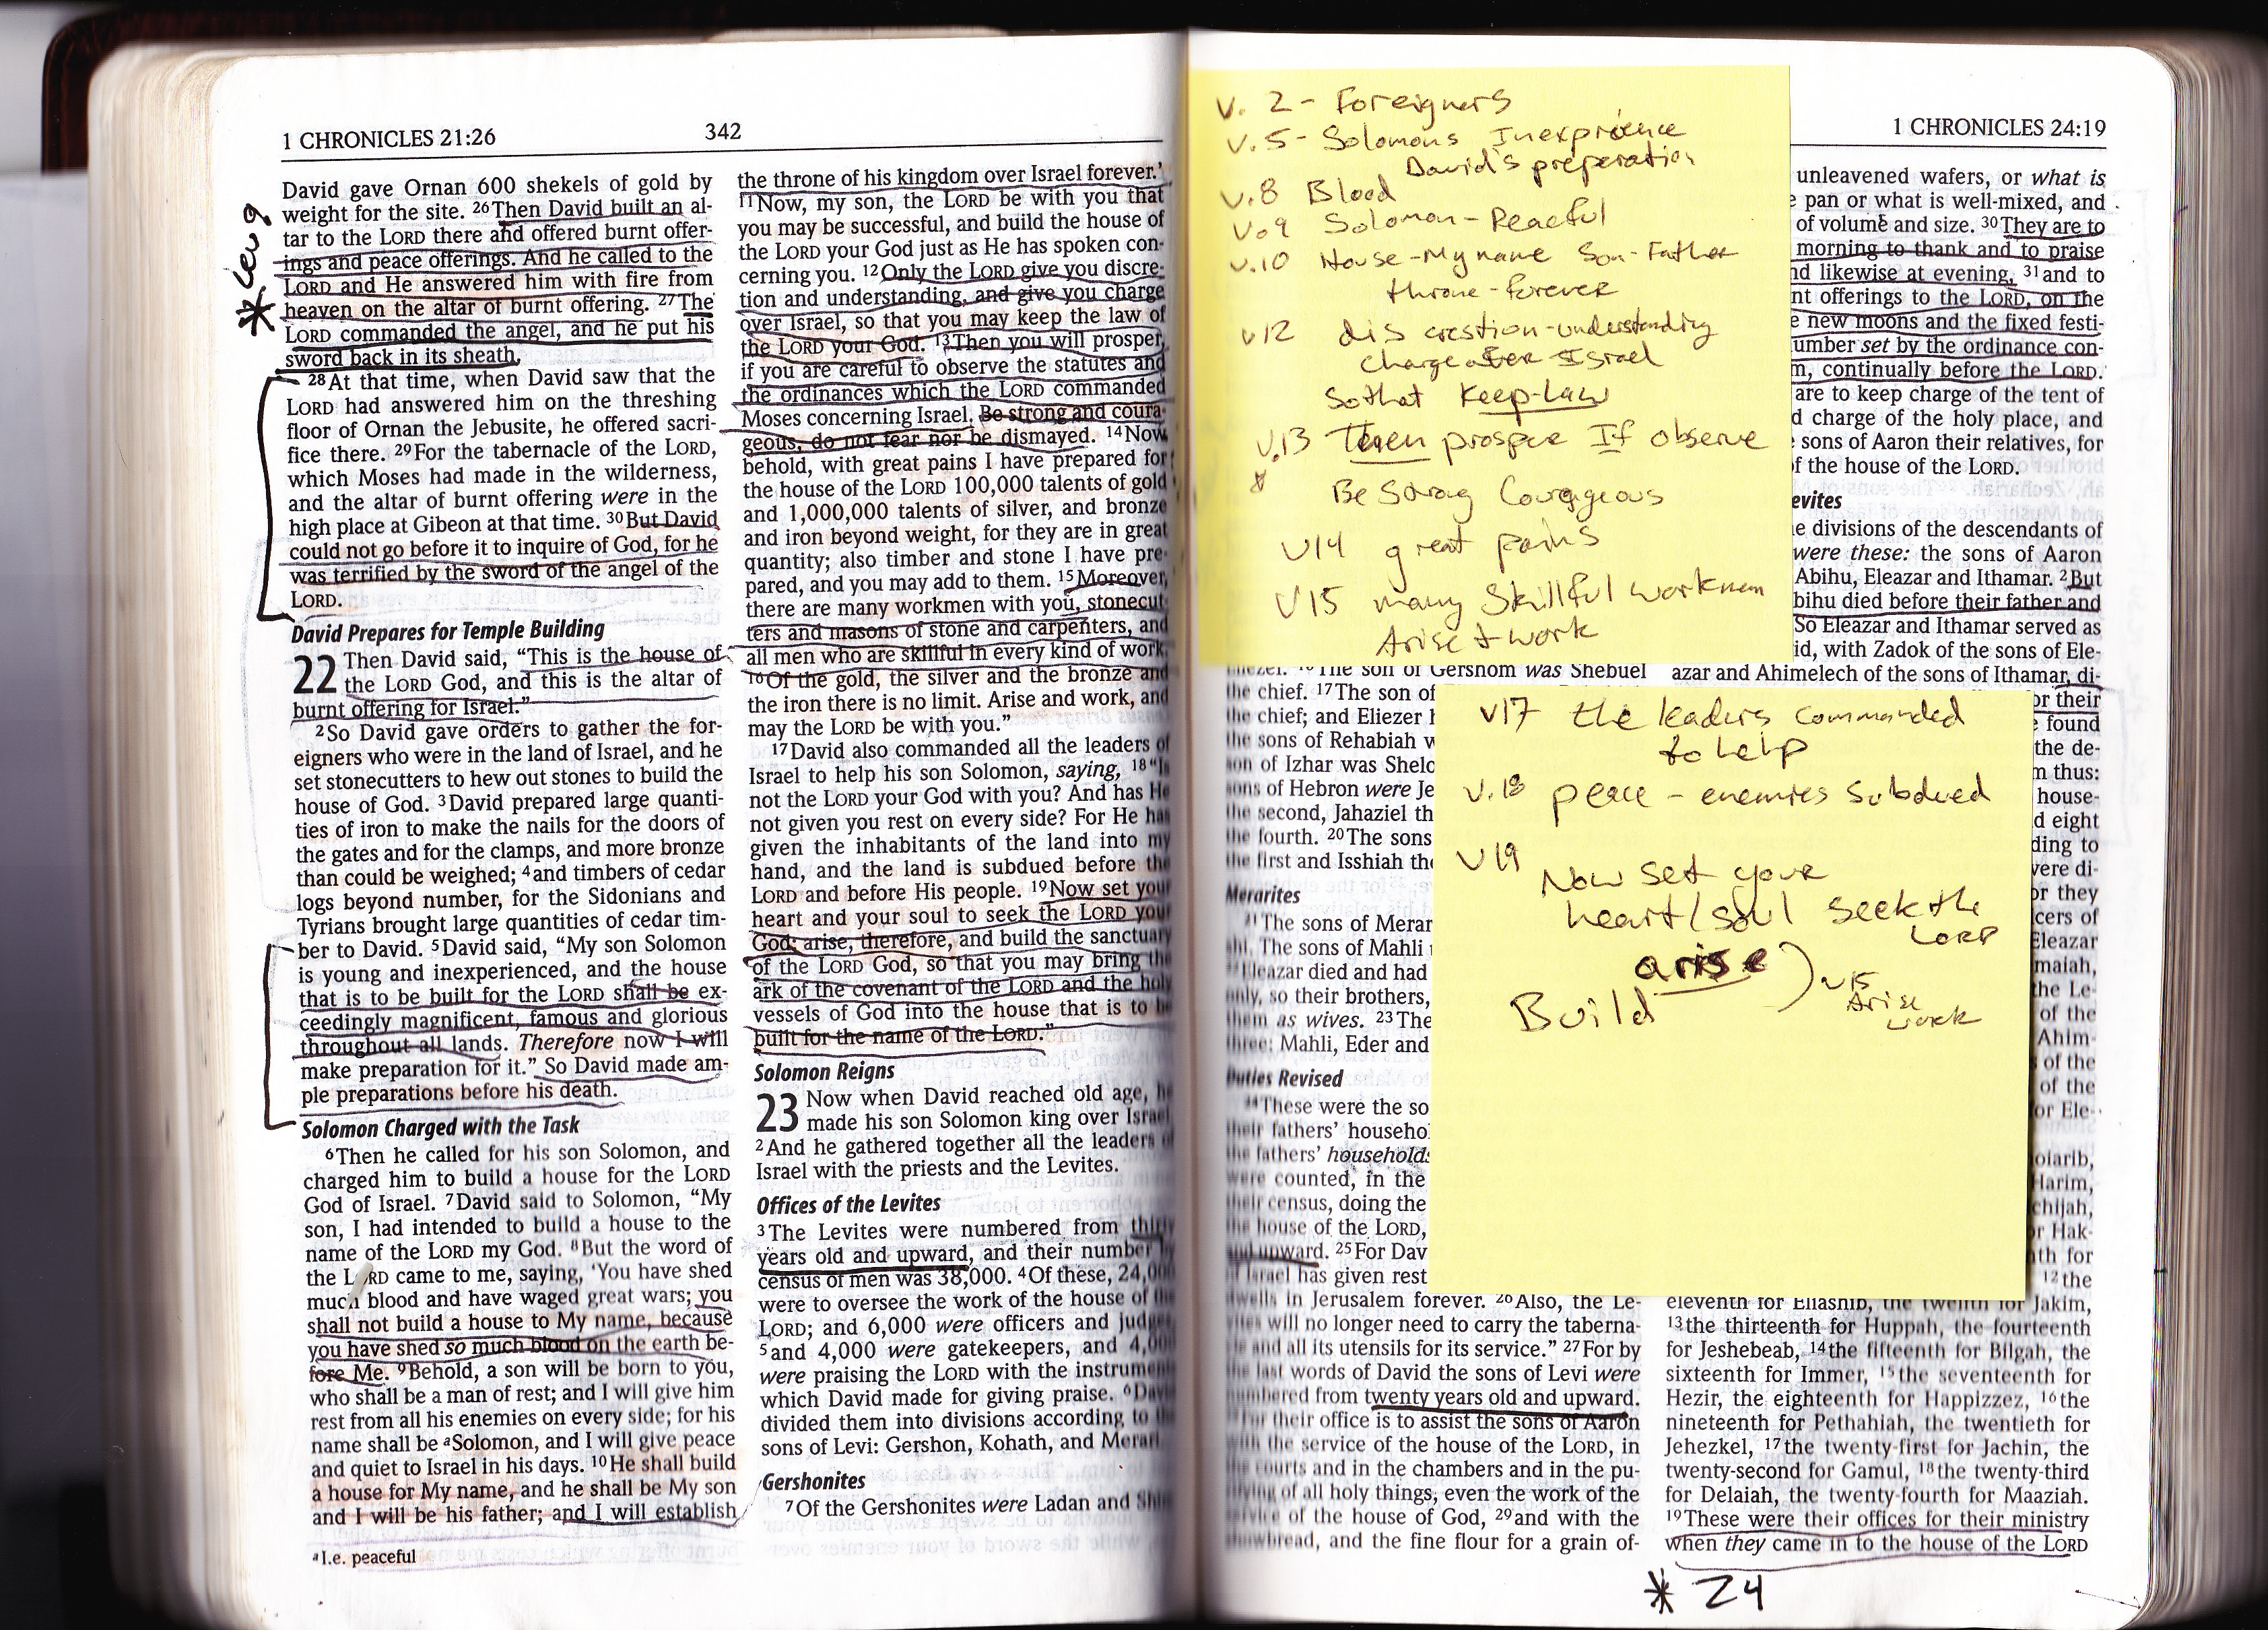 1 CHRONICLES 21:26
342
* Lev 9
David gave Ornan 600 shekels of gold by
weight for the site. 26Then David built an al-
tar to the LORD there and offered burnt offer-
ings and peace offerings. And he called to the
LORD and He answered him with fire from
heaven on the altar of burnt offering. 27The
LORD commanded the angel, and he put his
sword back in its sheath.
28At that time, when David saw that the
LORD had answered him on the threshing
floor of Ornan the Jebusite, he offered sacri-
fice there. 29For the tabernacle of the LORD,
which Moses had made in the wilderness,
and the altar of burnt offering were in the
high place at Gibeon at that time. 30But David
could not go before it to inquire of God, for he
was terrified by the sword of the angel of the
LORD.
David Prepares for Temple Building
22 Then David said, “This is the house of
the LORD God, and this is the altar of
burnt offering for Israel.”
2So David gave orders to gather the for-
eigners who were in the land of Israel, and he
set stonecutters to hew out stones to build the
house of God. 3David prepared large quanti-
ties of iron to make the nails for the doors of
the gates and for the clamps, and more bronze
than could be weighed; 4and timbers of cedar
logs beyond number, for the Sidonians and
Tyrians brought large quantities of cedar tim-
ber to David. 5David said, “My son Solomon
is young and inexperienced, and the house
that is to be built for the LORD shall be ex-
ceedingly magnificent, famous and glorious
throughout all lands. Therefore now I will
make preparation for it.” So David made am-
ple preparations before his death.
Solomon Charged with the Task
6Then he called for his son Solomon, and
charged him to build a house for the LORD
God of Israel. 7David said to Solomon, “My
son, I had intended to build a house to the
name of the LORD my God. 8But the word of
the LORD came to me, saying, ‘You have shed
much blood and have waged great wars; you
shall not build a house to My name, because
you have shed so much blood on the earth be-
fore Me. 9Behold, a son will be born to you,
who shall be a man of rest; and I will give him
rest from all his enemies on every side; for his
name shall be aSolomon, and I will give peace
and quiet to Israel in his days. 10He shall build
a house for My name, and he shall be My son
and I will be his father; and I will establish
aI.e. peaceful
the throne of his kingdom over Israel forever.’
11Now, my son, the LORD be with you that
you may be successful, and build the house of
the LORD your God just as He has spoken con-
cerning you. 12Only the LORD give you discre-
tion and understanding, and give you charge
over Israel, so that you may keep the law of
the LORD your God. 13Then you will prosper,
if you are careful to observe the statutes and
the ordinances which the LORD commanded
Moses concerning Israel. Be strong and coura-
geous, do not fear nor be dismayed. 14Now
behold, with great pains I have prepared for
the house of the LORD 100,000 talents of gold
and 1,000,000 talents of silver, and bronze
and iron beyond weight, for they are in great
quantity; also timber and stone I have pre-
pared, and you may add to them. 15Moreover,
there are many workmen with you, stonecut-
ters and masons of stone and carpenters, and
all men who are skillful in every kind of work.
16Of the gold, the silver and the bronze and
the iron there is no limit. Arise and work, and
may the LORD be with you.”
17David also commanded all the leaders of
Israel to help his son Solomon, saying, 18“Is
not the LORD your God with you? And has He
not given you rest on every side? For He has
given the inhabitants of the land into my
hand, and the land is subdued before the
LORD and before His people. 19Now set your
heart and your soul to seek the LORD your
God; arise, therefore, and build the sanctuary
of the LORD God, so that you may bring the
ark of the covenant of the LORD and the holy
vessels of God into the house that is to be
built for the name of the LORD.”
Solomon Reigns
23 Now when David reached old age, he
made his son Solomon king over Israel.
2And he gathered together all the leaders of
Israel with the priests and the Levites.
Offices of the Levites
3The Levites were numbered from thirty
years old and upward, and their number by
census of men was 38,000. 4Of these, 24,000
were to oversee the work of the house of the
LORD; and 6,000 were officers and judges,
5and 4,000 were gatekeepers, and 4,000
were praising the LORD with the instruments
which David made for giving praise. 6David
divided them into divisions according to the
sons of Levi: Gershon, Kohath, and Merari.
Gershonites
7Of the Gershonites were Ladan and Shim
V. 2 - Foreigners
V. 5 - Solomons Inexprience
David's preperation
V.8 Blood
V.9 Solomon - Peaceful
V.10 House - My name Son - Father
throne - forever
V12 discrestion - understanding
charge over Israel
So that Keep - Law
V.13 Then prosper If observe
Be Strong Courageous
V14 great pains
V15 many Skillful workmen
Arise + work
eliezer. 16The son of Gershom was Shebuel
the chief. 17The son of
the chief; and Eliezer h
the sons of Rehabiah w
son of Izhar was Shelo
sons of Hebron were Je
the second, Jahaziel th
the fourth. 20The sons
the first and Isshiah the
Merarites
21The sons of Merar
shi. The sons of Mahli
Eleazar died and had
only, so their brothers,
them as wives. 23The
three: Mahli, Eder and
Duties Revised
24These were the so
their fathers’ househo
the fathers’ households
were counted, in the
their census, doing the
the house of the LORD,
and upward. 25For Dav
of Israel has given rest
dwells in Jerusalem forever. 26Also, the Le-
vites will no longer need to carry the taberna-
le and all its utensils for its service.” 27For by
last words of David the sons of Levi were
numbered from twenty years old and upward.
for their office is to assist the sons of Aaron
with the service of the house of the LORD, in
the courts and in the chambers and in the pu-
rifying of all holy things, even the work of the
service of the house of God, 29and with the
showbread, and the fine flour for a grain of-
V17 the leaders commanded
to help
V.18 peace - enemies subdued
V19 Now set your
heart/soul seek the
LORD
arise
Build
V15
Arise
work
1 CHRONICLES 24:19
unleavened wafers, or what is
e pan or what is well-mixed, and
of volume and size. 30They are to
morning to thank and to praise
nd likewise at evening, 31and to
nt offerings to the LORD, on the
e new moons and the fixed festi-
umber set by the ordinance con-
m, continually before the LORD.
are to keep charge of the tent of
d charge of the holy place, and
sons of Aaron their relatives, for
f the house of the LORD.
evites
e divisions of the descendants of
were these: the sons of Aaron
Abihu, Eleazar and Ithamar. 2But
bihu died before their father and
So Eleazar and Ithamar served as
id, with Zadok of the sons of Ele-
azar and Ahimelech of the sons of Ithamar, di-
or their
e found
the de-
m thus:
house-
d eight
ding to
vere di-
or they
cers of
Eleazar
maiah,
the Le-
of the
Ahim-
s of the
of the
or Ele-
oiarib,
Harim,
chijah,
or Hak-
nth for
12the
eleventh for Eliashib, the twelfth for Jakim,
13the thirteenth for Huppah, the fourteenth
for Jeshebeab, 14the fifteenth for Bilgah, the
sixteenth for Immer, 15the seventeenth for
Hezir, the eighteenth for Happizzez, 16the
nineteenth for Pethahiah, the twentieth for
Jehezkel, 17the twenty-first for Jachin, the
twenty-second for Gamul, 18the twenty-third
for Delaiah, the twenty-fourth for Maaziah.
19These were their offices for their ministry
when they came in to the house of the LORD
* 24